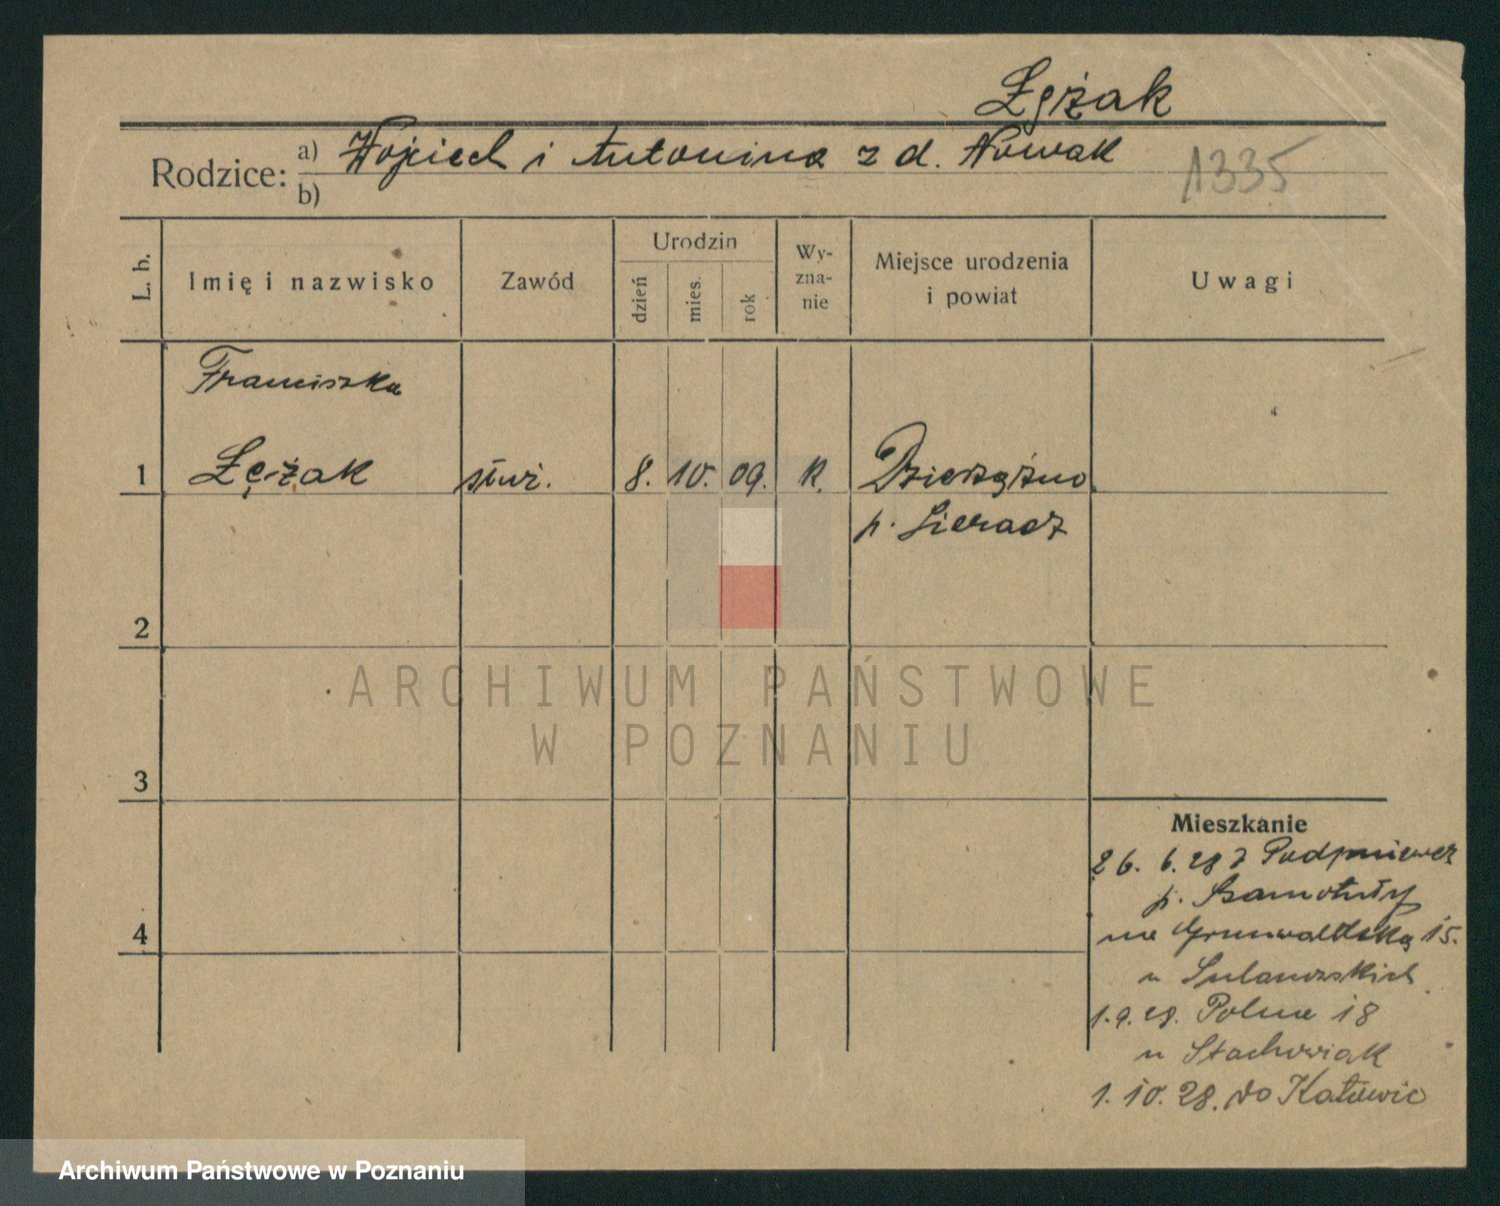 Łężak
Rodzice: a) Wojciech i Antonina z d. Nowak
b)
1335
L. b.
Imię i nazwisko
Zawód
Urodzin
dzień
mies.
rok
Wy-
zna-
nie
Miejsce urodzenia
i powiat
Uwagi
Franciszka
1 Łężak służ. 8. 10. 09. R. Dzierzążno
p. Sieradz
2
3
4
Mieszkanie
26. 6. 28 z Podpniewek
p. Szamotuły
na Grunwaldzką 15.
u
1. 9. 28. Polna 18
u Stachowiak
1. 10. 28. do Katowic
ARCHIWUM PAŃSTWOWE
W POZNANIU
Archiwum Państwowe w Poznaniu